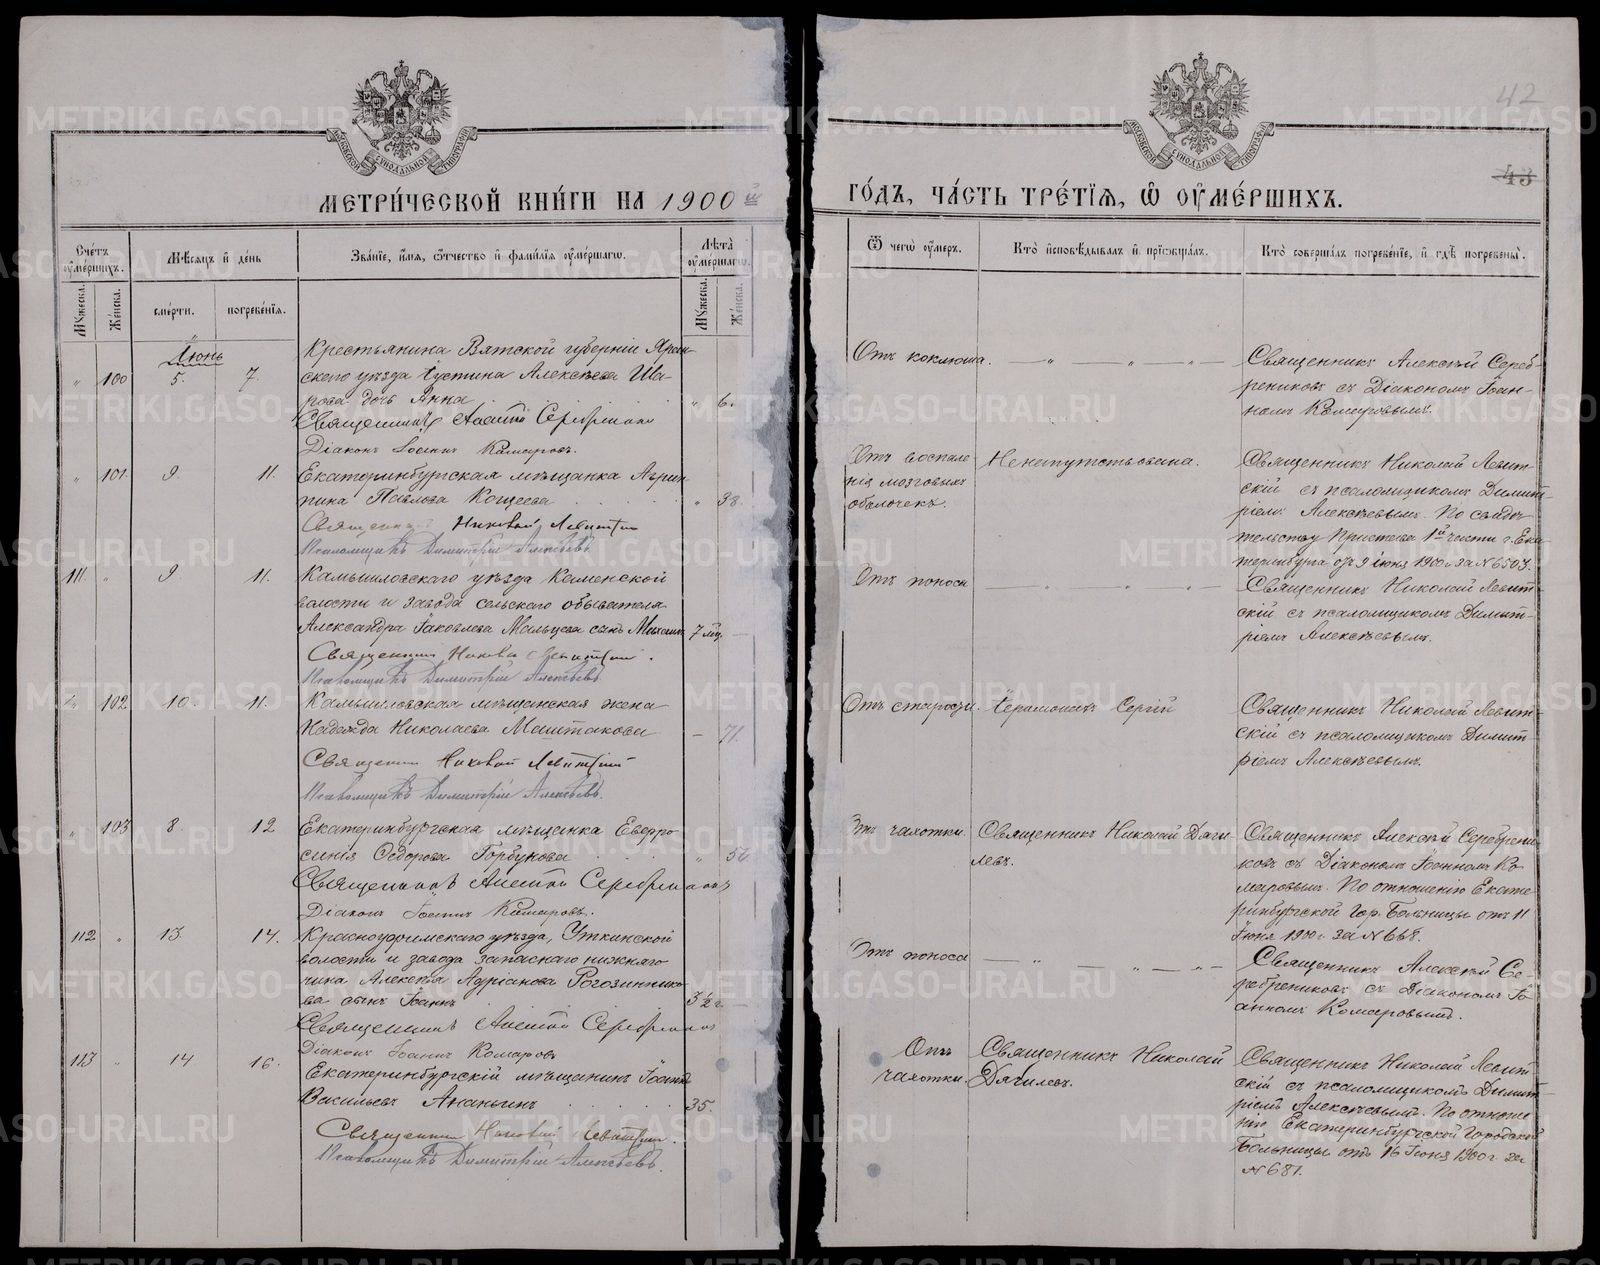 МЕТРИ́ЧЕСКОЙ КНИ́ГИ НА 1900 й
ГО́ДЪ, ЧА́СТЬ ТРЕ́ТЇѦ, Ѽ ОУ҆МЕ́РШИХЪ.
42
43
Сче́тъ оумершихъ.
Мѣсяцъ и день
Зва́нїе, и́мя, ѻтчество и фами́лїя оумершагѡ.
Лѣта оумершагѡ.
Ѿ чегѡ оумеръ.
Кто исповѣдывалъ и прїѡбщалъ.
Кто совершалъ погребенїе, и гдѣ погребены.
Мꙋжеска.
Женска.
смерти.
погребенїя.
Мꙋжеска.
Женска.
Іюнь
" 100 5. 7.
Крестьянина Вятской губерніи Яран-
скаго уѣзда Іустина Алексѣева Ша-
рова дочь Анна " 6.
Священникъ Алексій Серебрениковъ
Діаконъ Іоаннъ Комаровъ.
Отъ коклюша.
Священникъ Алексій Сереб-
рениковъ съ Діакономъ Іоан-
номъ Комаровымъ.
" 101. 9. 11.
Екатеринбургская мѣщанка Агрип-
пина Павлова Кощеева " 38.
Священникъ Николай Левитскій
Псаломщикъ Димитрій Алексѣевъ
Отъ воспале
нія мозговыхъ
оболочекъ.
Ненапутствована.
Священникъ Николай Левит-
скій съ псаломщикомъ Димит-
ріемъ Алексѣевымъ. По свидѣ-
тельству Пристава 1й части г. Ека-
теринбурга отъ 9 іюня 1900 г за № 6507.
111. " 9 11.
Камышловскаго уѣзда Каменской
волости и завода сельскаго обывателя
Александра Іаковлева Мальцева сынъ Михаилъ 7 мц.
Священникъ Николай Левитскій.
Псаломщикъ Димитрій Алексѣевъ
Отъ поноса
Священникъ Николай Левит-
скій съ псаломщикомъ Димит-
ріемъ Алексѣевымъ.
" 102 10. 11.
Камышловская мѣщанская жена
Надежда Николаева Маштакова — 71.
Священникъ Николай Левитскій
Псаломщикъ Димитрій Алексѣевъ.
Отъ старости.
Іеромонахъ Сергій
Священникъ Николай Левит-
скій съ псаломщикомъ Димит-
ріемъ Алексѣевымъ.
" 103 8. 12
Екатеринбургская мѣщанка Евфро-
синія Ѳедорова Горбунова " 56
Священникъ Алексій Серебрениковъ
Діаконъ Іоаннъ Комаровъ.
Отъ чахотки.
Священникъ Николай Дяги-
левъ.
Священникъ Алексій Серебрени-
ковъ съ Діакономъ Іоанномъ Ко-
маровымъ. По отношенію Екате-
ринбургской Гор. Больницы отъ 11
Іюня 1900 г за № 668.
112 " 13. 14.
Красноуфимскаго уѣзда, Уткинской
волости и завода запаснаго нижняго
чина Алексѣя Адріанова Рогозинико-
ва сынъ Іоаннъ 3 ½ г.
Священникъ Алексій Серебрениковъ
Діаконъ Іоаннъ Комаровъ
Отъ поноса
Священникъ Алексій Се-
ребрениковъ съ Діакономъ Іо-
анномъ Комаровымъ.
113 " 14 16.
Екатеринбургскій мѣщанинъ Іоаннъ
Васильевъ Ананьинъ 35.
Священникъ Николай Левитскій.
Псаломщикъ Димитрій Алексѣевъ.
Отъ
чахотки.
Священникъ Николай
Дягилевъ.
Священникъ Николай Левит-
скій съ псаломщикомъ Димит-
ріемъ Алексѣевымъ. По отноше
нію Екатеринбургской Городской
Больницы отъ 16 Іюня 1900 г за
№ 681.
METRIKI.GASO-URAL.RU